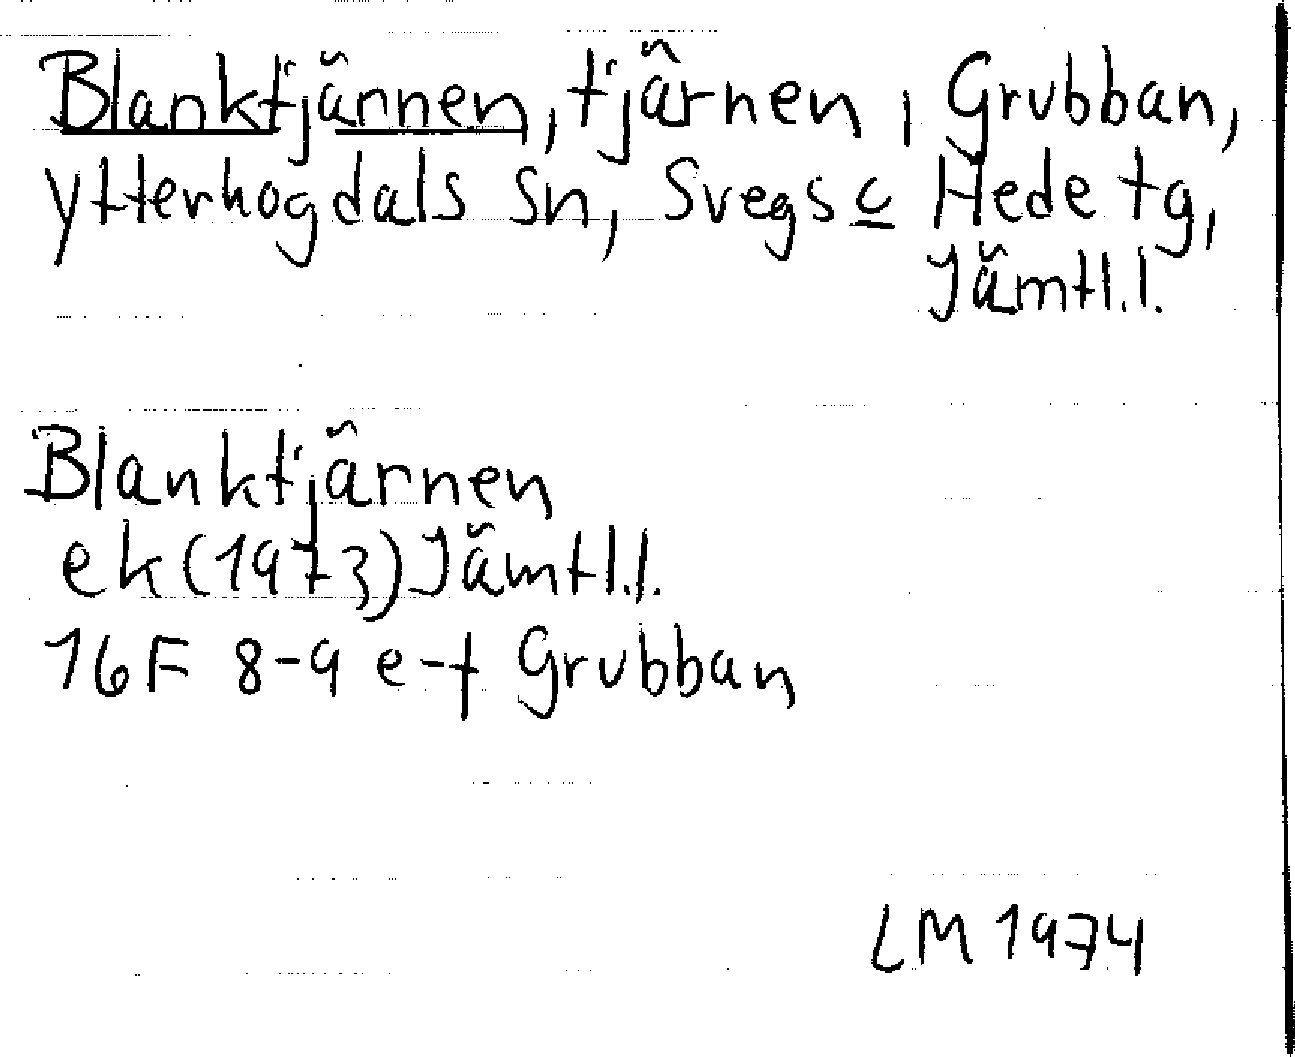 Blanktjärnen, tjärnen, Grubban,
Ytterhogdals sn, Svegs c Hede tg,
Jämtl.l.
Blanktjärnen
ek(1973) Jämtl.l.
16F 8-9 e-f Grubban
LM 1974